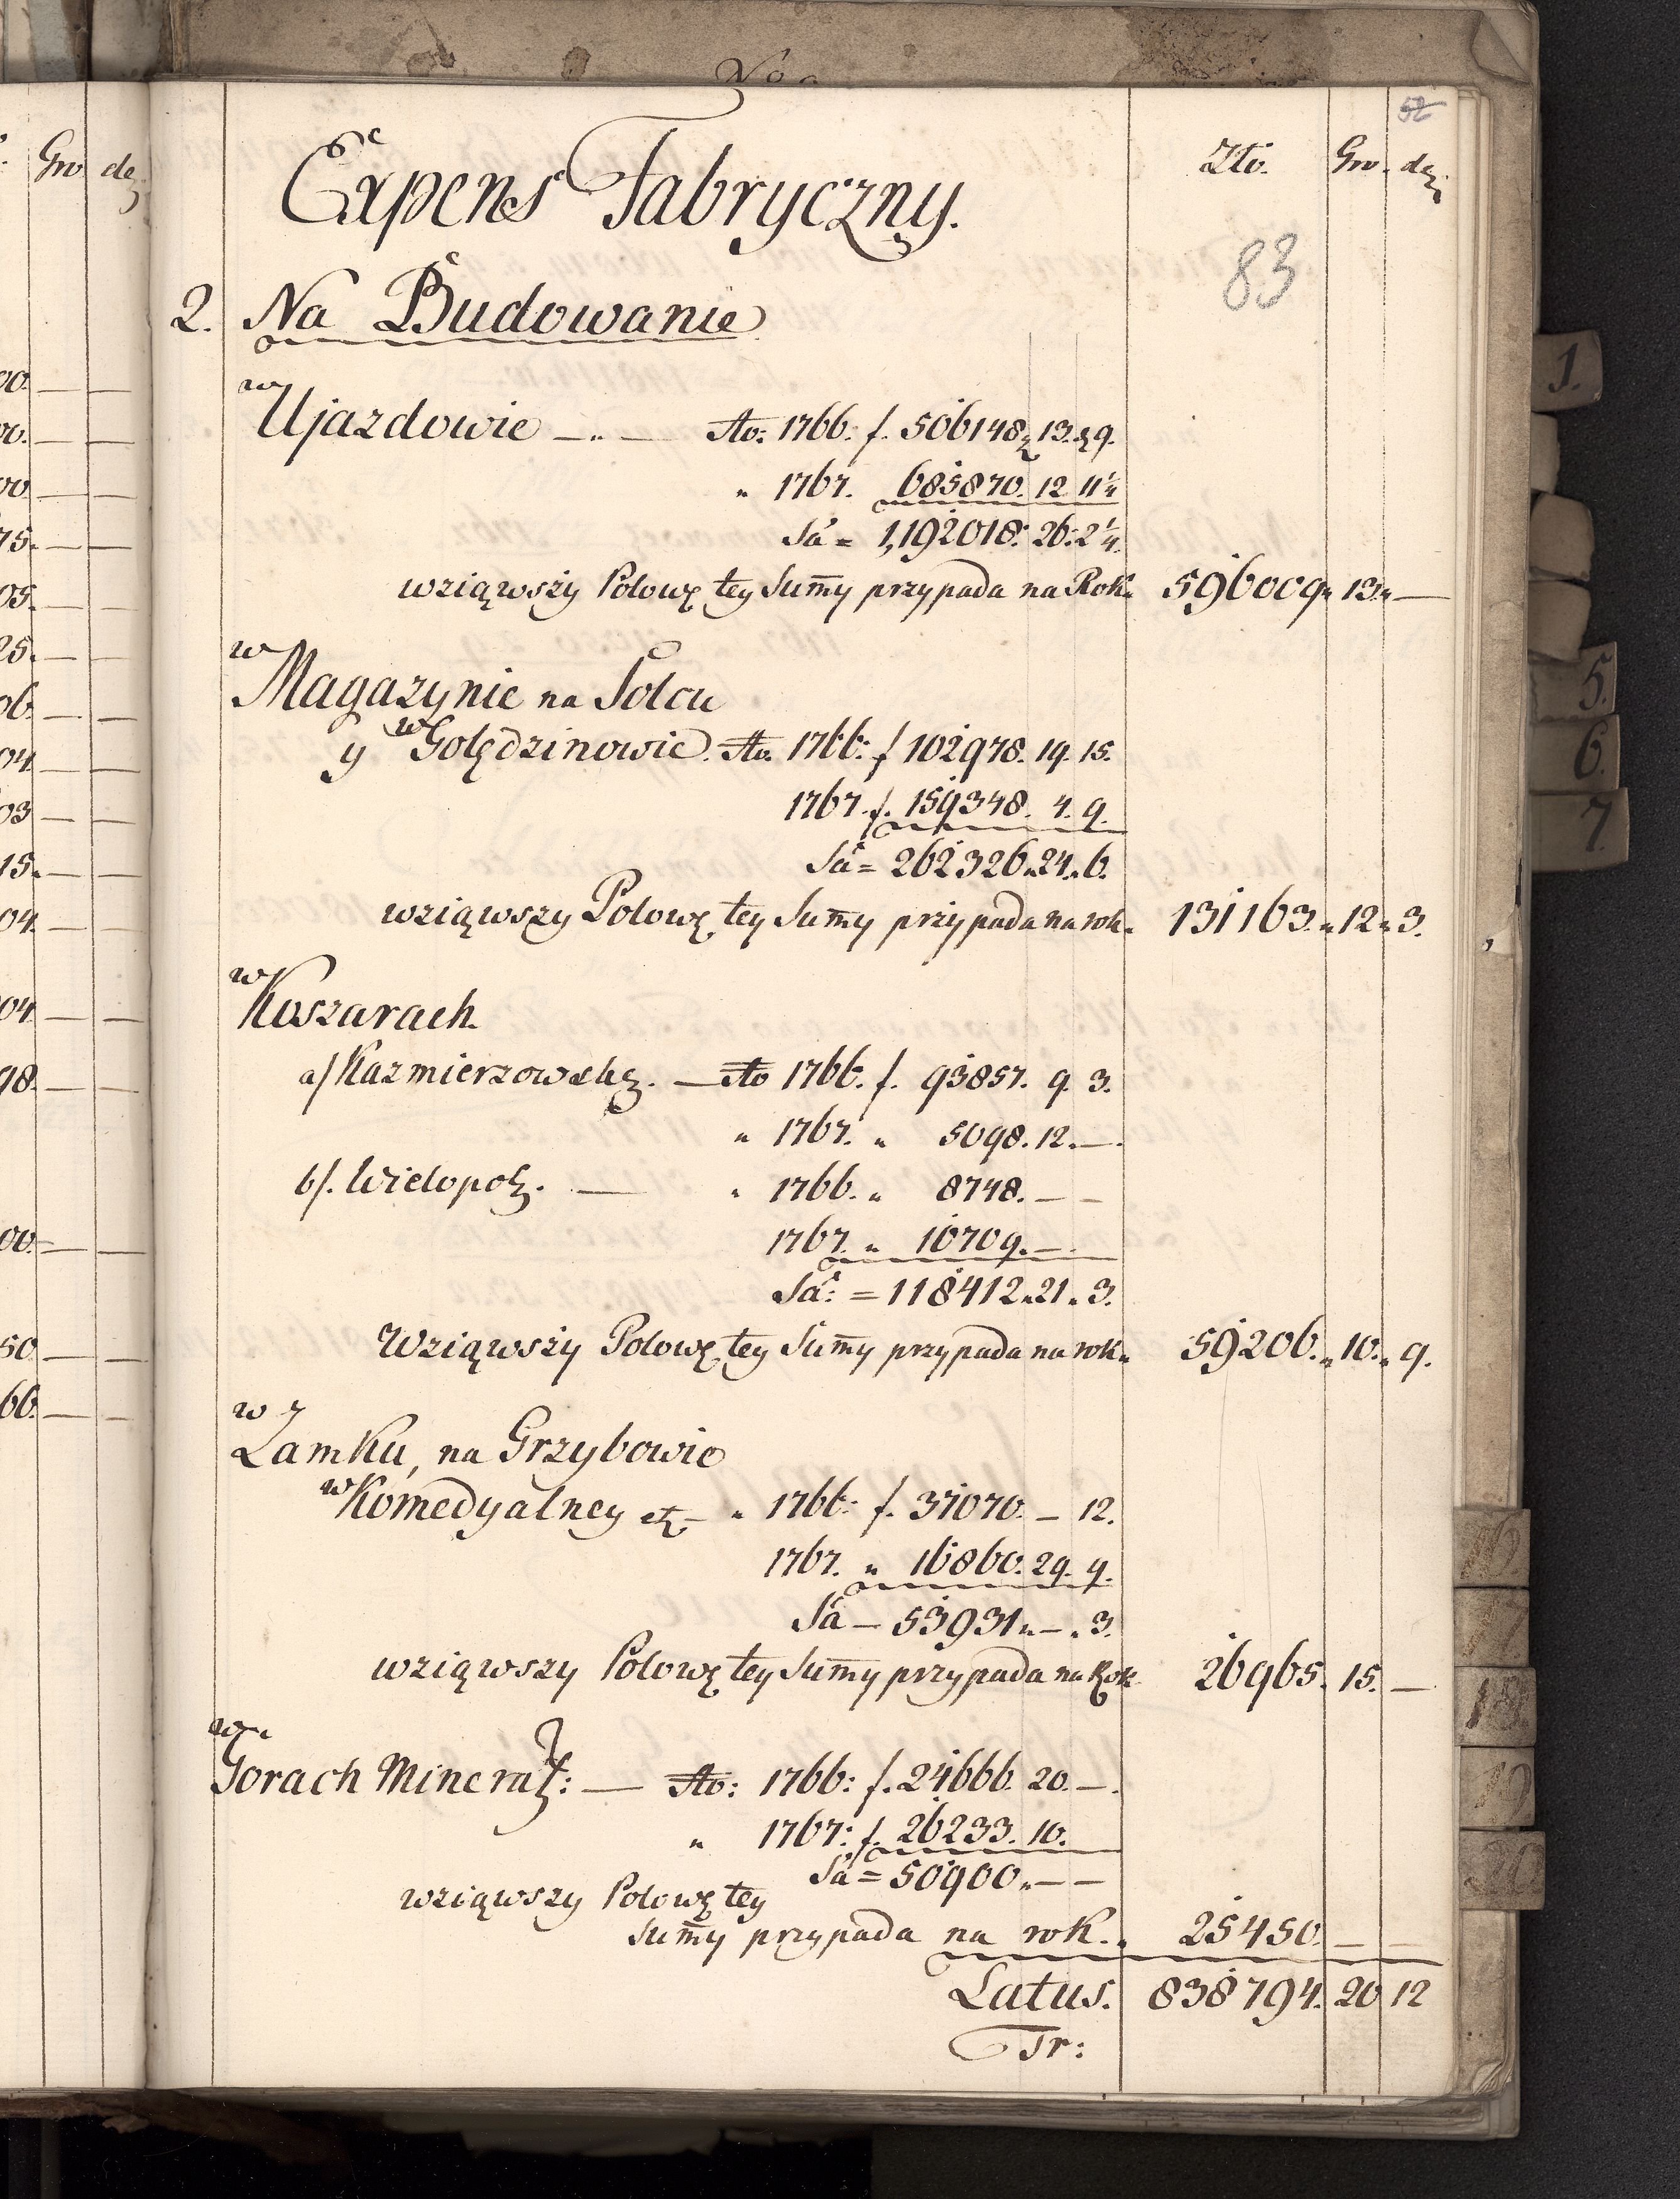 52
Zło. Gro. dę.
Expens Fabryczny.
83
2. Na Budowanie
w Ujazdowie —„— Ao: 1766: f. 506148. 13. 9.
„ 1767. 685870. 12 11¼
Sa = 1,192018: 26: 2¼.
wziąwszy Połowę tey Sum̅y przypada na Rok„ 596009„ 13„ —
w Magazynie na Solcu
y w Golędzinowie. Ao. 1766: f 102978. 19. 15.
1767. f. 159348. 4. 9.
Sa = 262326„ 24„ 6.
wziąwszy Połowę tey Sum̅y przypada na rok„ 131163.„ 12„ 3.
w Koszarach.
a/ Kazmierzowskę. — Ao 1766. f. 93857. 9. 3.
„ 1767. „ 5098. 12. —.
b/. Wielopolę. — „ 1766. „ 8748. — —
1767. „ 10709. —
Sa: = 118412„ 21„ 3.
Wziąwszy Połowę tey Sum̅y przypada na rok„ 59206.„ 10.„ 9.
w Zamku, na Grzybowie
w Komedyalney etc — „ 1766: f. 37070. — 12.
1767. „ 16860. 29. 9.
Sa — 53931„ — „ 3.
wziąwszy Połowę tey Sum̅y przypada na Rok 26965. 15. —
w Gorach Minerał: — Ao: 1766: f. 24666. 20. —.
„ 1767: f. 26233. 10.
Sa = 50900„ — —
wziąwszy Połowę tey
Sum̅y przypada na rok.„ 25450. — —
Latus. 838794. 20 12
Tr:
Gro dę.
00. — —
00. — —
00. — —
75. — —
05. — —
25. — —
06. — —
04. — —
03 — —
15. — —
04. — —
04. — —
98. — —
00. — —
50. — —
66. — —
1.
5.
6.
7.
18.
19
20